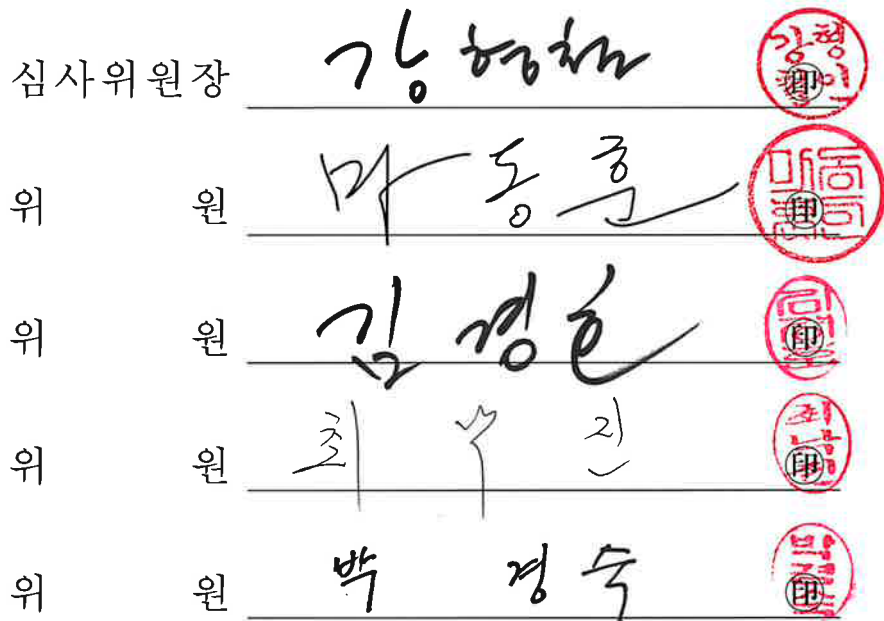 심사위원장 강형철 印
위 원 마동훈 印
위 원 김경호 印
위 원 최 진 印
위 원 박경숙 印